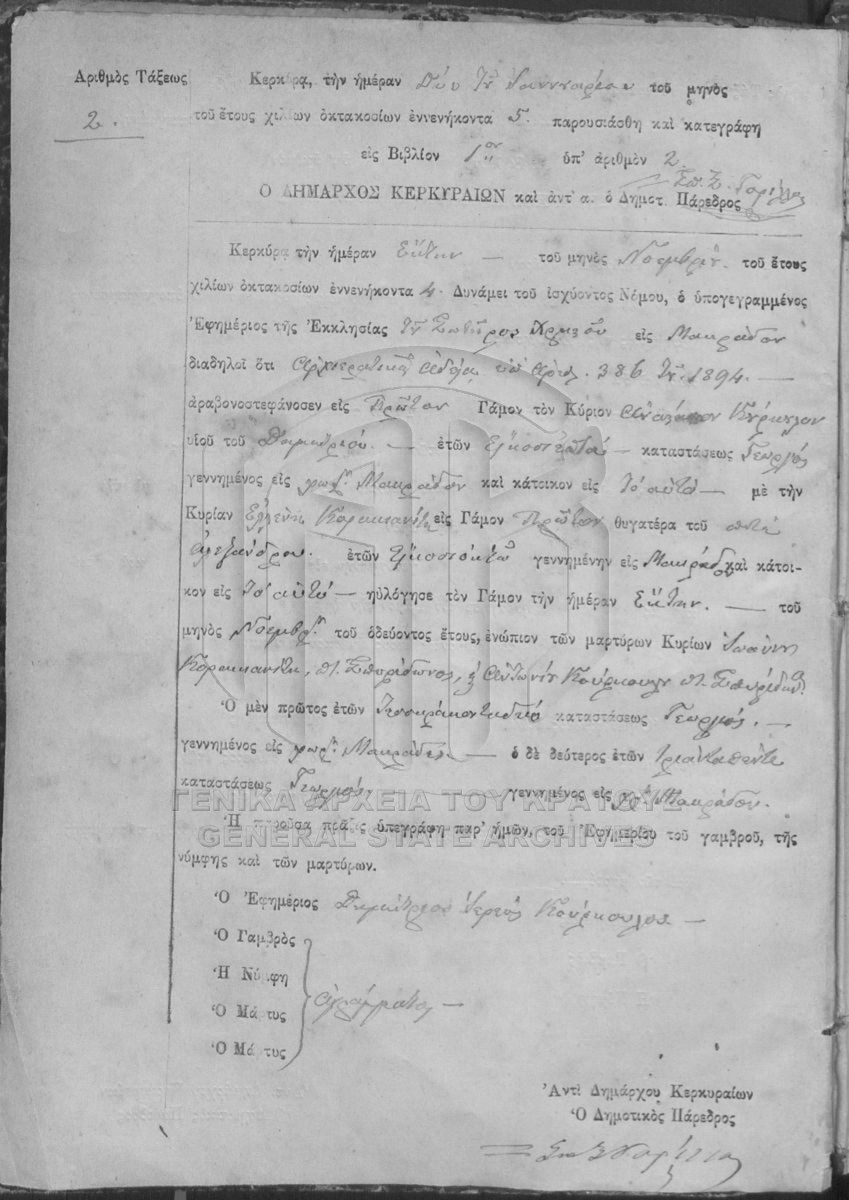 Αριθμὸς Τάξεως
2.
Κερκύρα, τὴν ἡμέραν Δύο τοῦ Ἰαννουαρίου τοῦ μηνὸς
τοῦ ἔτους χιλίων ὀκτακοσίων ἐννενήκοντα 5. παρουσιάσθη καὶ κατεγράφη
εἰς Βιβλίον 1ον ὑπ' ἀριθμὸν 2.
Ο ΔΗΜΑΡΧΟΣ ΚΕΡΚΥΡΑΙΩΝ καὶ ἀντ' α. ὁ Δημοτ. Πάρεδρος
Κερκύρα τὴν ἡμέραν Ἕκτην — τοῦ μηνὸς Νοεμβρίου. τοῦ ἔτους
χιλίων ὀκτακοσίων ἐννενήκοντα 4. Δυνάμει τοῦ ἰσχύοντος Νόμου, ὁ ὑπογεγραμμένος
Ἐφημέριος τῆς Ἐκκλησίας τοῦ Σωτῆρος Χριστοῦ εἰς Μακράδον
διαδηλοῖ ὅτι Ἀρχιερατικῇ ἀδείᾳ ὑπ' ἀριθ. 386 τοῦ 1894. —
ἀραβονοστεφάνοσεν εἰς Πρῶτον Γάμον τὸν Κύριον Κούρκουλον
υἱοῦ τοῦ Δημητρίου. — ἐτῶν — καταστάσεως Γεωργός
γεννημένος εἰς χωρ. Μακράδον καὶ κάτοικον εἰς Τὸ αὐτὸ — μὲ τὴν
Κυρίαν Ἑλένην Κορακιανίτη εἰς Γάμον Πρῶτον θυγατέρα τοῦ ποτὲ
Ἀλεξάνδρου. ἐτῶν Εἰκοσιοκτὼ γεννημένην εἰς Μακράδον καὶ κάτοι-
κον εἰς Τὸ αὐτὸ — ηὐλόγησε τὸν Γάμον τὴν ἡμέραν Ἕκτην. — τοῦ
μηνὸς Νοεμβρ. τοῦ ὁδεύοντος ἔτους, ἐνώπιον τῶν μαρτύρων Κυρίων Ἰωάννη
Κορακιανίτη, π. Σπυρίδωνος, & Ἀντωνίου Κούρκουλου π. Σπυρίδωνος
Ὁ μὲν πρῶτος ἐτῶν καταστάσεως Γεωργός. —
γεννημένος εἰς χωρ. Μακράδες — ὁ δὲ δεύτερος ἐτῶν τριάκοντα πέντε
καταστάσεως Γεωργός. — γεννημένος εἰς χω. Μακράδον.
ΓΕΝΙΚΑ ΑΡΧΕΙΑ ΤΟΥ ΚΡΑΤΟΥΣ
GENERAL STATE ARCHIVES
Ἡ παροῦσα πρᾶξις ὑπεγράφη παρ' ἡμῶν, τοῦ Ἐφημερίου τοῦ γαμβροῦ, τῆς
νύμφης καὶ τῶν μαρτύρων.
Ὁ Ἐφημέριος Δημήτριος Ἱερεὺς Κούρκουλος —
Ὁ Γαμβρὸς
Ἡ Νύμφη
Ἀγράμματοι —
Ὁ Μάρτυς
Ὁ Μάρτυς
Ἀντὶ Δημάρχου Κερκυραίων
Ὁ Δημοτικὸς Πάρεδρος